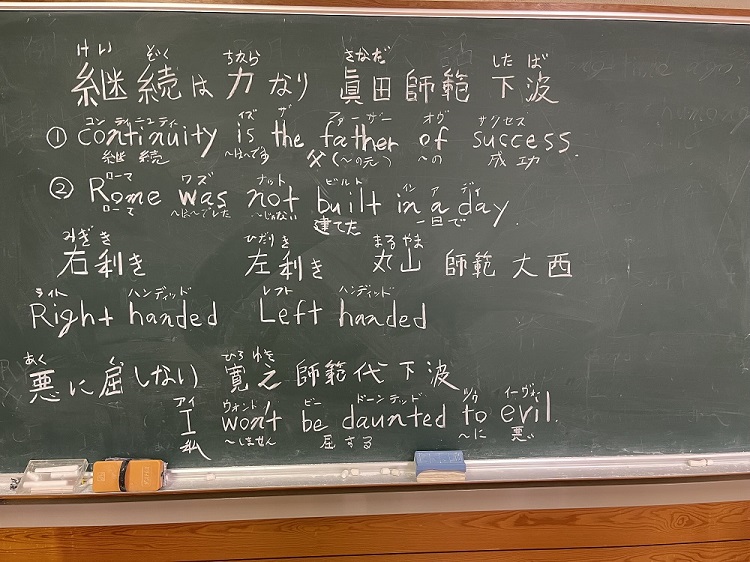 けい ぞく ちから さなだ した ば
継続は力なり 眞田 師範 下波
コンティニュティー イズ ザ ファーザー オヴ サクセス
① continuity is the father of success.
継続 〜は〜です 父(〜の元) 〜の 成功
ローマ ワズ ナット ビルト イン ア デイ
② Rome was not built in a day.
ローマ 〜は〜でした 〜じゃない 建てた 一日で
みぎ き ひだり き まる やま
右利き 左利き 丸山 師範 大西
ライト ハンディッド レフト ハンディッド
Right handed Left handed
あく くっ ひろ ゆき
悪に屈しない 寛之 師範代 下波
アイ ウォント ビー ドーンテッド トゥ イーヴォ
I won't be daunted to evil.
私 〜しません 屈する 〜に 悪い